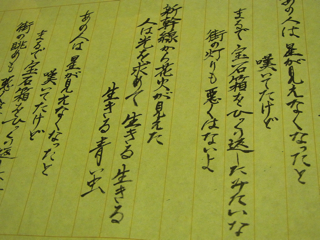 あの人は 星が見えなくなったと
嘆いてたけど
まるで宝石箱をひっくり返したみたいな
街の灯りも悪くはないよ
新幹線から花火が見えた
人は光を求めて生きる 生きる
生きる 青い虫
あの人は 星が見えなくなったと
嘆いてたけど
まるで宝石箱をひっくり返し
街の眺めも悪